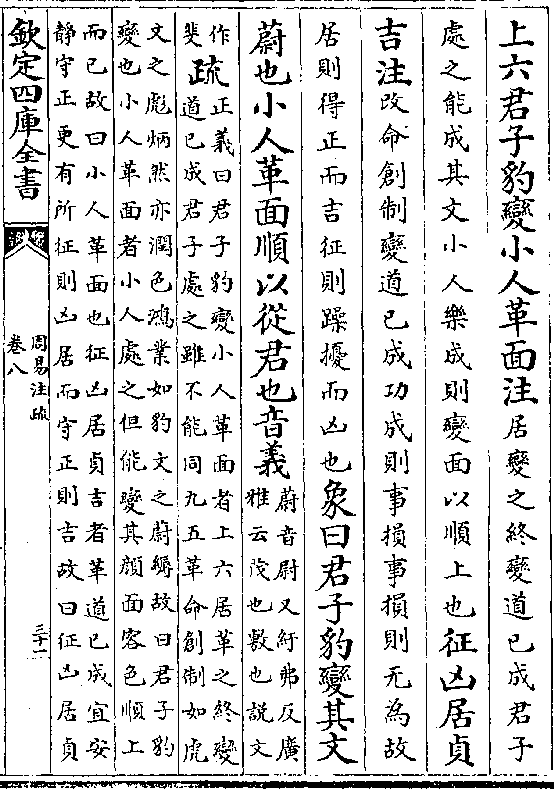 上六君子豹變小人革面注居變之終變道已成君子
處之能成其文小人樂成則變面以順上也征凶居貞
吉注改命創制變道已成功成則事損事損則无為故
居則得正而吉征則躁擾而凶也象曰君子豹變其文
蔚也小人革面順以從君也音義蔚音尉又紆弗反廣
雅云茂也數也說文
作
斐疏正義曰君子豹變小人革面者上六居革之終變
道已成君子處之雖不能同九五革命創制如虎
文之彪炳然亦潤色鴻業如豹文之蔚縟故曰君子豹
變也小人革面者小人處之但能變其顏面容色順上
而已故曰小人革面也征凶居貞吉者革道已成宜安
靜守正更有所征則凶居而守正則吉故曰征凶居貞
欽定四庫全書
周易注疏
卷八
三十二